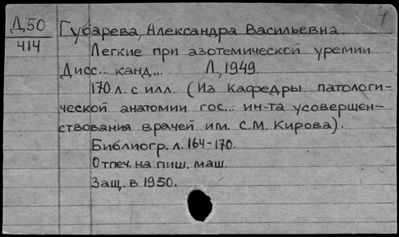 Д50
414
Губарева, Александра Васильевна.
Легкие при азотемической уремии
Дисс... канд... Л., 1949.
170 л. с илл. (Из кафедры патологи-
ческой анатомии гос... ин-та усовершен-
ствования врачей им. С.М. Кирова).
Библиогр. л. 164-170.
Отпеч. на пиш. маш.
Защ. в 1950.